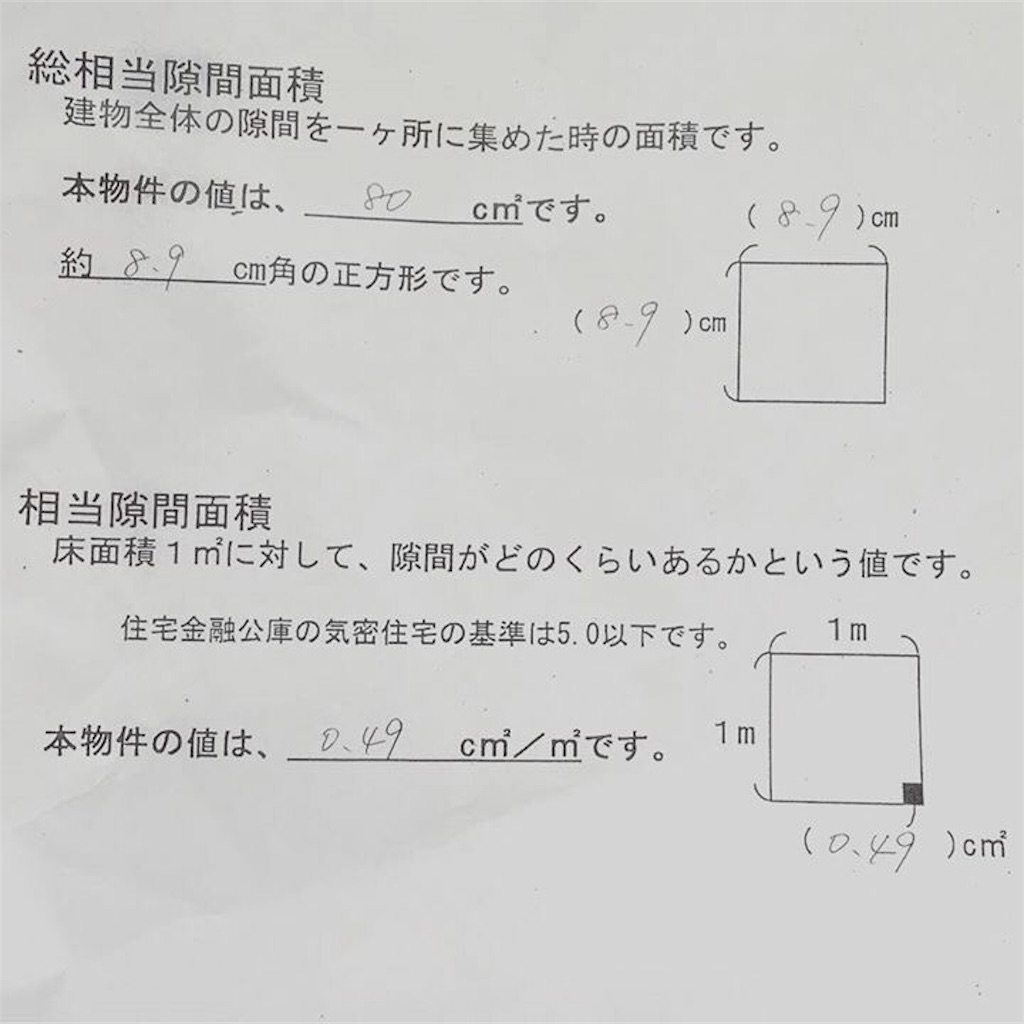 総相当隙間面積
建物全体の隙間を一ヶ所に集めた時の面積です。
本物件の値は、 80 c㎡です。
(8.9)cm
約 8.9 cm角の正方形です。
(8.9)cm
相当隙間面積
床面積1㎡に対して、隙間がどのくらいあるかという値です。
住宅金融公庫の気密住宅の基準は5.0以下です。
1m
1m
本物件の値は、 0.49 c㎡/㎡です。
(0.49)c㎡